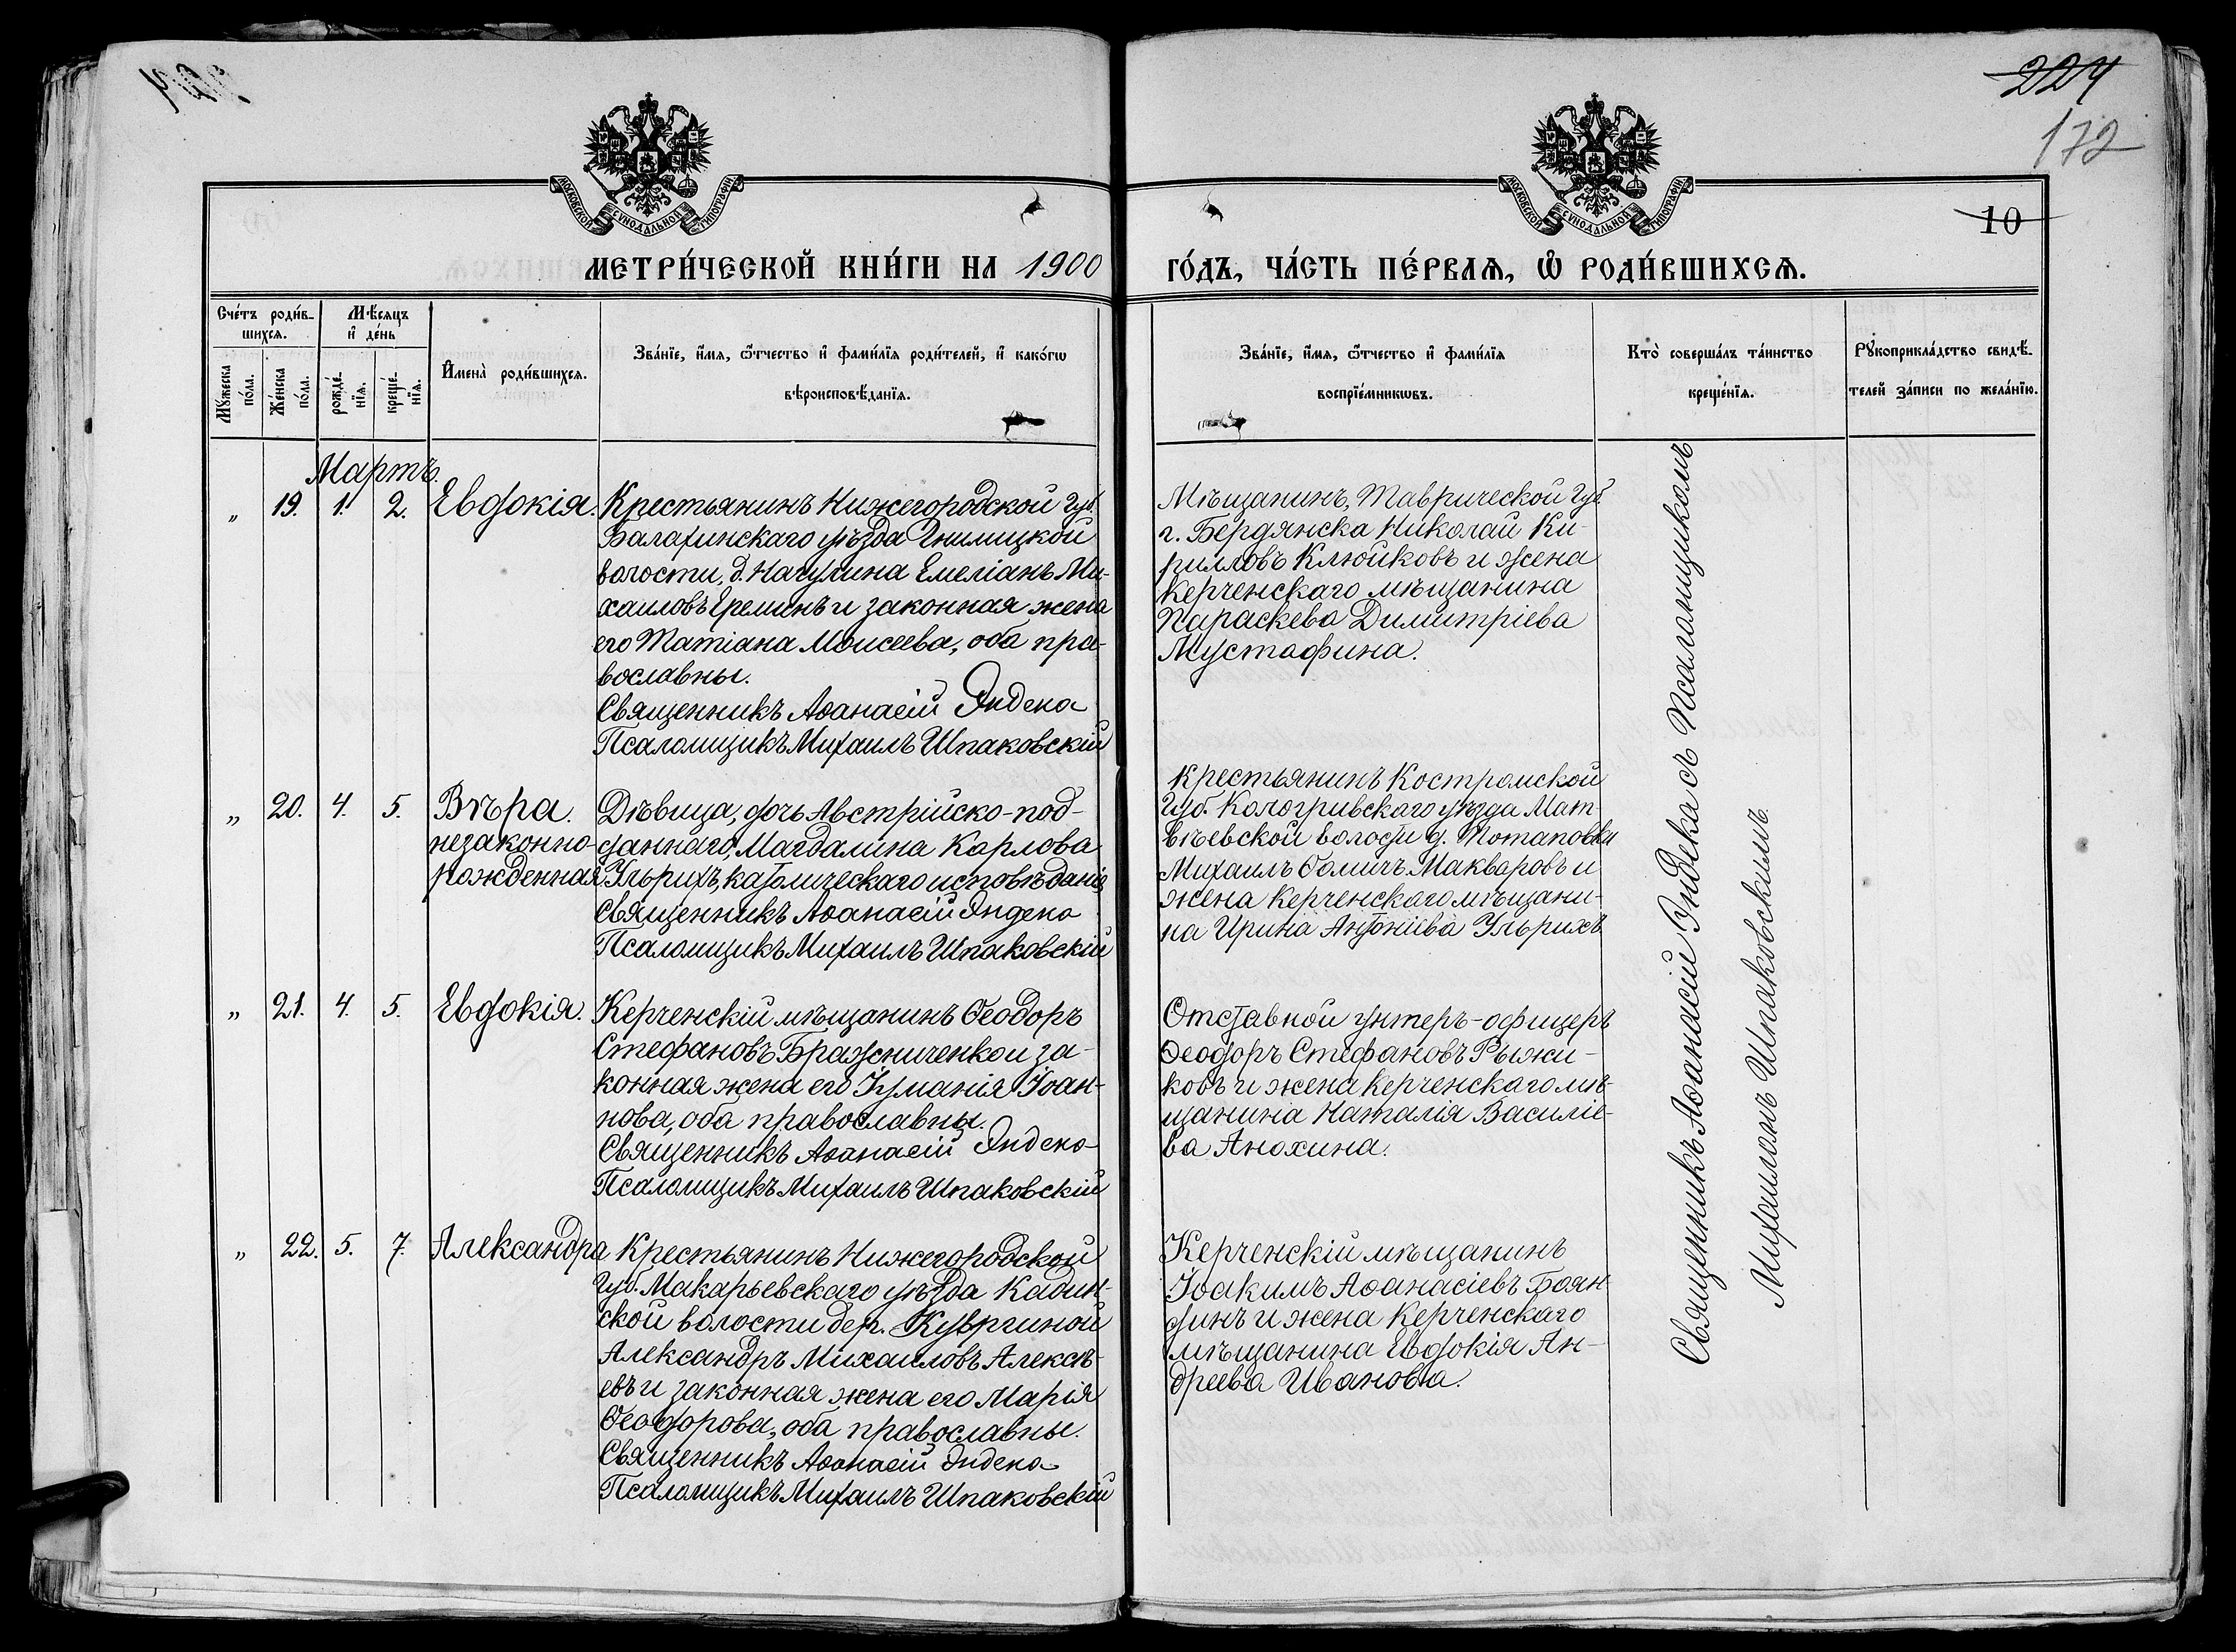 224
172
МОСКОВСКОЙ СѴНОДАЛЬНОЙ ТИПОГРАФІИ
МОСКОВСКОЙ СѴНОДАЛЬНОЙ ТИПОГРАФІИ
10
МЕТРИ́ЧЕСКОЙ КНИ́ГИ НА 1900
ГО́ДЪ, ЧА́СТЬ ПЕ́РВАѦ, Ѡ҆ РОДИ́ВШИХСѦ.
Сче́тъ роди́в-
шихсѧ.
Мꙋ́жеска по́ла.
Же́нска по́ла.
Мѣ́сѧцъ
и҆ де́нь
рожде́-
нїѧ.
креще́-
нїѧ.
И҆мена̀ роди́вшихсѧ.
Зва́нїе, и҆́мѧ, ѻ҆́тчество и҆ фами́лїѧ роди́телей, и҆ како́гѡ
вѣроисповѣ́данїѧ.
Зва́нїе, и҆́мѧ, ѻ҆́тчество и҆ фами́лїѧ
воспрїе́мникѡвъ.
Кто̀ соверша́лъ та́инство
креще́нїѧ.
Рꙋкоприкла́дство свидѣ́-
телей за́писи по жела́нїю.
Мартъ.
„ 19. 1. 2. Евдокія.
Крестьянинъ Нижегородской Губ.
Балахинскаго уѣзда Гнилицкой
волости, д. Начулина Емеліанъ Ми-
хаиловъ Ереминъ и законная жена
его Татіана Моисеева, оба пра-
вославны.
Священникъ Аѳанасій Яндека
Псаломщикъ Михаилъ Шпаковскій
Мѣщанинъ, Таврической Губ.
г. Бердянска Николай Ки-
рилловъ Клюйковъ и жена
Керченскаго мѣщанина
Параскева Димитріева
Мустафина.
„ 20. 4. 5. Вѣра.
незаконно-
рожденная
Дѣвица, дочь Австрійско-под-
даннаго, Магдалина Карлова
Ульрихъ, католическаго исповѣданія
Священникъ Аѳанасій Яндека
Псаломщикъ Михаилъ Шпаковскій
Крестьянинъ Костромской
Губ. Кологривскаго уѣзда Мат-
вѣевской волости д. Потаповки
Михаилъ Ѳомичъ Макваровъ и
жена Керченскаго мѣщани-
на Ирина Антоніева Ульрихъ
„ 21. 4. 5. Евдокія.
Керченскій мѣщанинъ Ѳеодоръ
Стефановъ Бражниченко и за-
конная жена его Іуліанія Іоан-
нова, оба православны.
Священникъ Аѳанасій Яндека
Псаломщикъ Михаилъ Шпаковскій
Отставной унтеръ-офицеръ
Ѳеодоръ Стефановъ Рыжи-
ковъ и жена Керченскаго мѣ-
щанина Наталія Василіе-
ва Анохина.
„ 22. 5. 7. Александра
Крестьянинъ Нижегородской
Губ. Макарьевскаго уѣзда Кадин-
ской волости дер.
Александръ Михаиловъ Алексѣ-
евъ и законная жена его Марія
Ѳеодорова, оба православны.
Священникъ Аѳанасій Яндека
Псаломщикъ Михаилъ Шпаковскій
Керченскій мѣщанинъ
Іоакимъ Аѳанасіевъ Боян-
динъ и жена Керченскаго
мѣщанина Евдокія Ан-
дреева Иванова.
Священникъ Аѳанасій Яндека съ Псаломщикомъ
Михаиломъ Шпаковскимъ